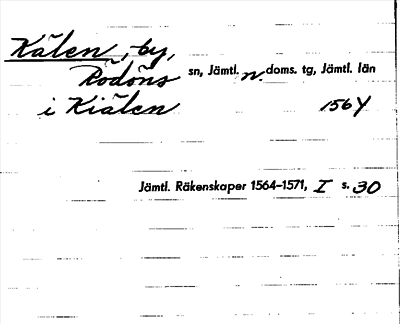 Kälen, by,
Rödöns sn, Jämtl. n. doms. tg, Jämtl. län
i Kiälen 1564
Jämtl. Räkenskaper 1564–1571, I s. 30